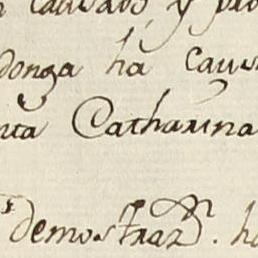 causado y pro
donga ha caus
nta Catharina
demostraz.n ha